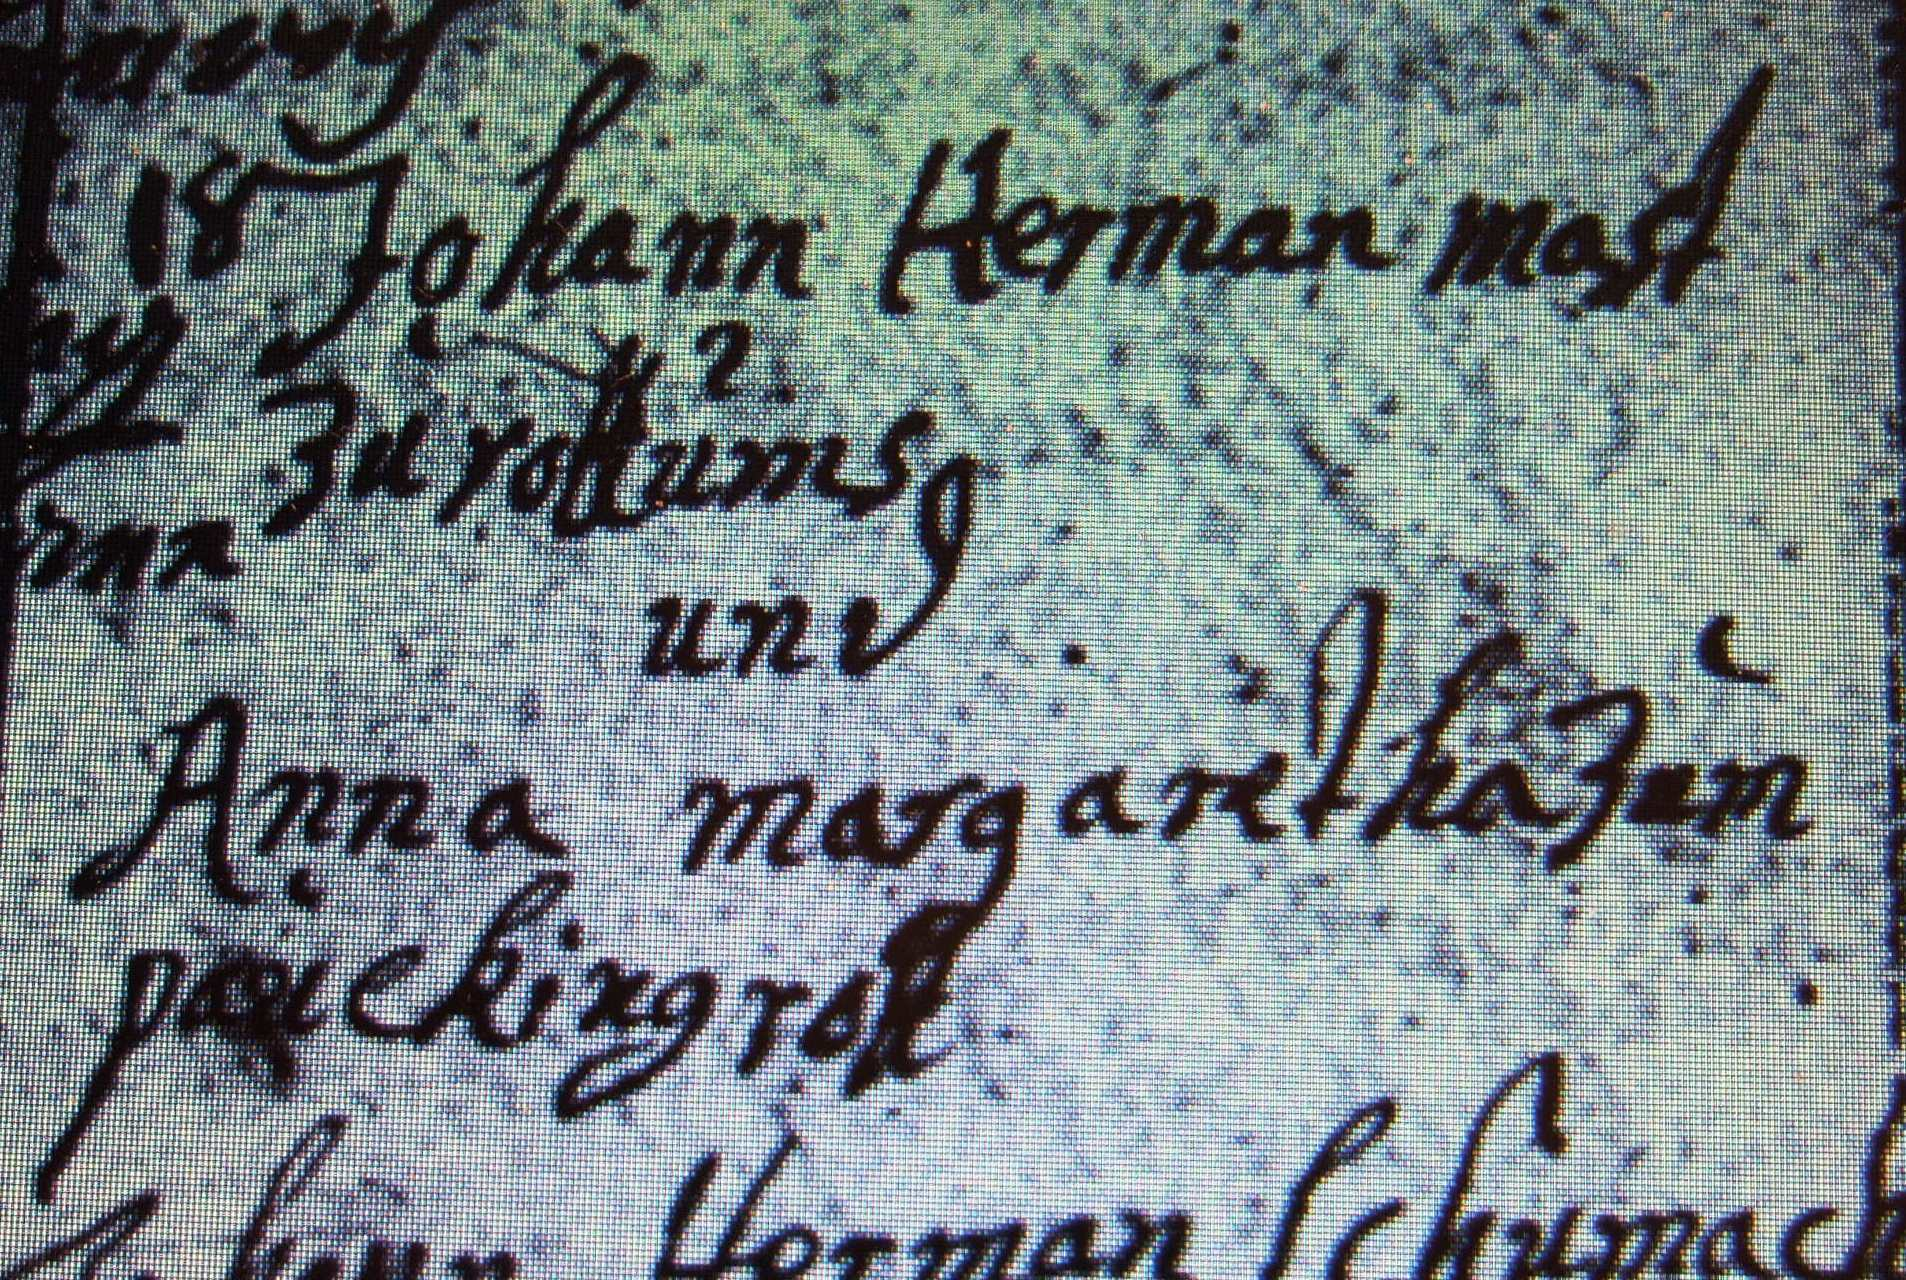 18 Johann Herman mast
zu rokums
und
Anna margaretha zum
pöickingrok
Johann Herman Schumach